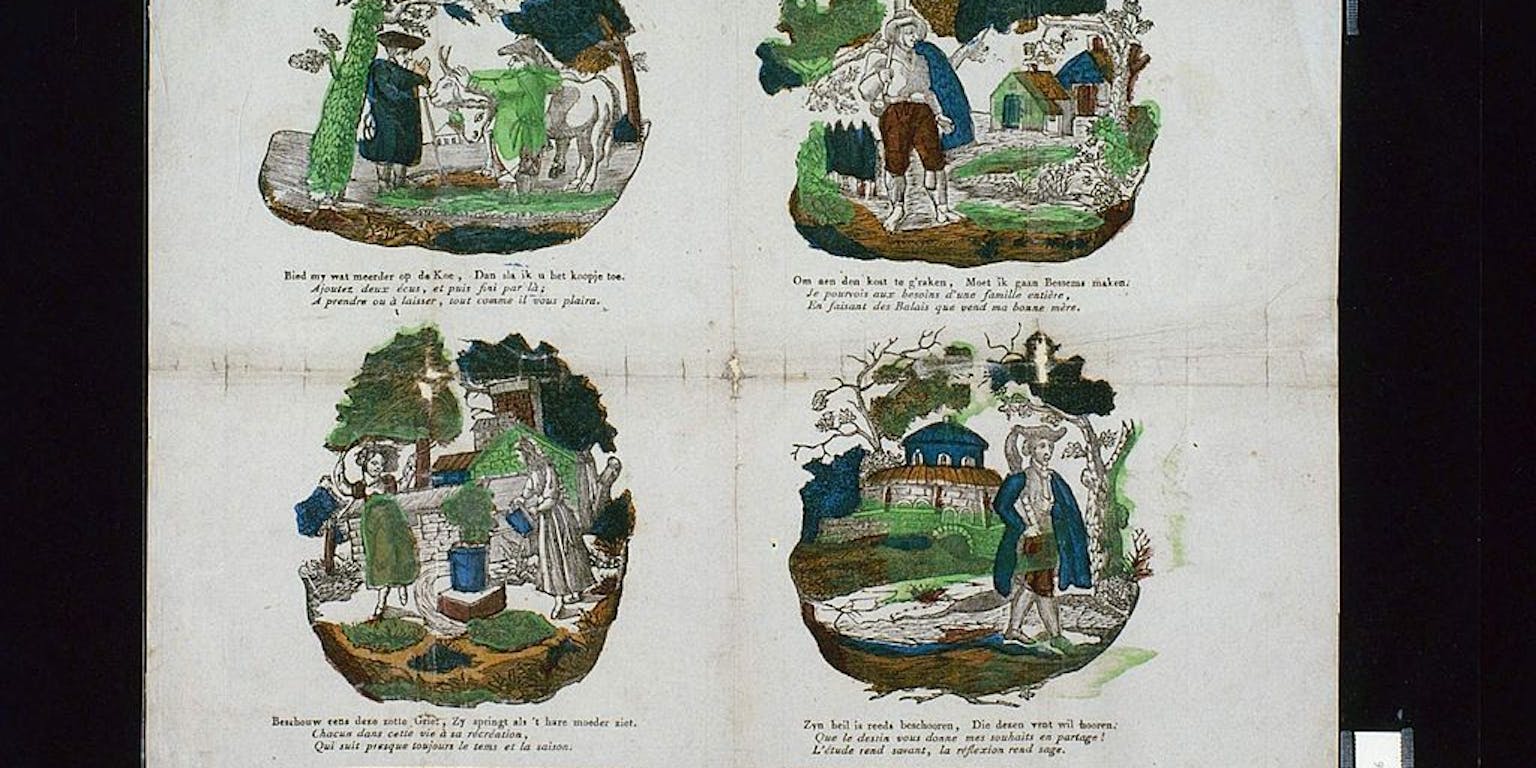 Bied my wat meerder op de Koe, Dan sla ik u het koopje toe.
Ajoutez deux écus, et puis fini par là;
A prendre ou à laisser, tout comme il vous plaira.
Om aen den kost te g'raken, Moet ik gaan Bessems maken.
Je pourvois aux besoins d'une famille entière,
En faisant des Balais que vend ma bonne mère.
Beschouw eens deze zotte Griet, Zy springt als 't hare moeder ziet.
Chacun dans cette vie à sa récréation,
Qui suit presque toujours le tems et la saison.
Zyn heil is reeds beschooren, Die dezen vent wil hooren.
Que le destin vous donne mes souhaits en partage!
L'étude rend savant, la réflexion rend sage.